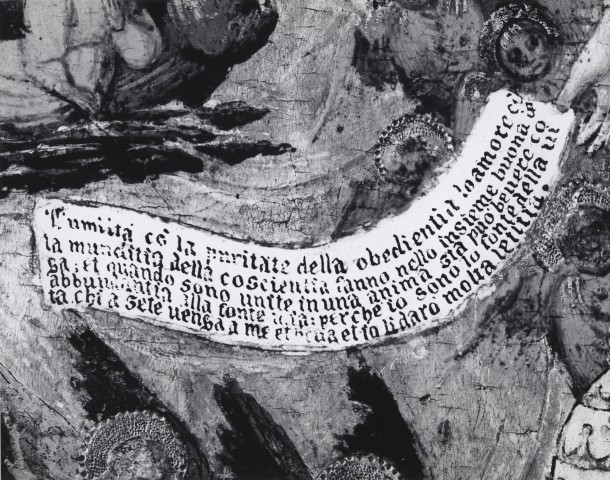 Lumilta cō la puritate della obedientia lo amore cō
la munditia della coscientia fanno nello insieme buona
ga: et quando sono unite in una anima, sta ppo benere cō
abbundantia alla fonte perche io sono lo fonte della ui
ta, chi a sete uenga a me et beua et io li daro molta letitia.